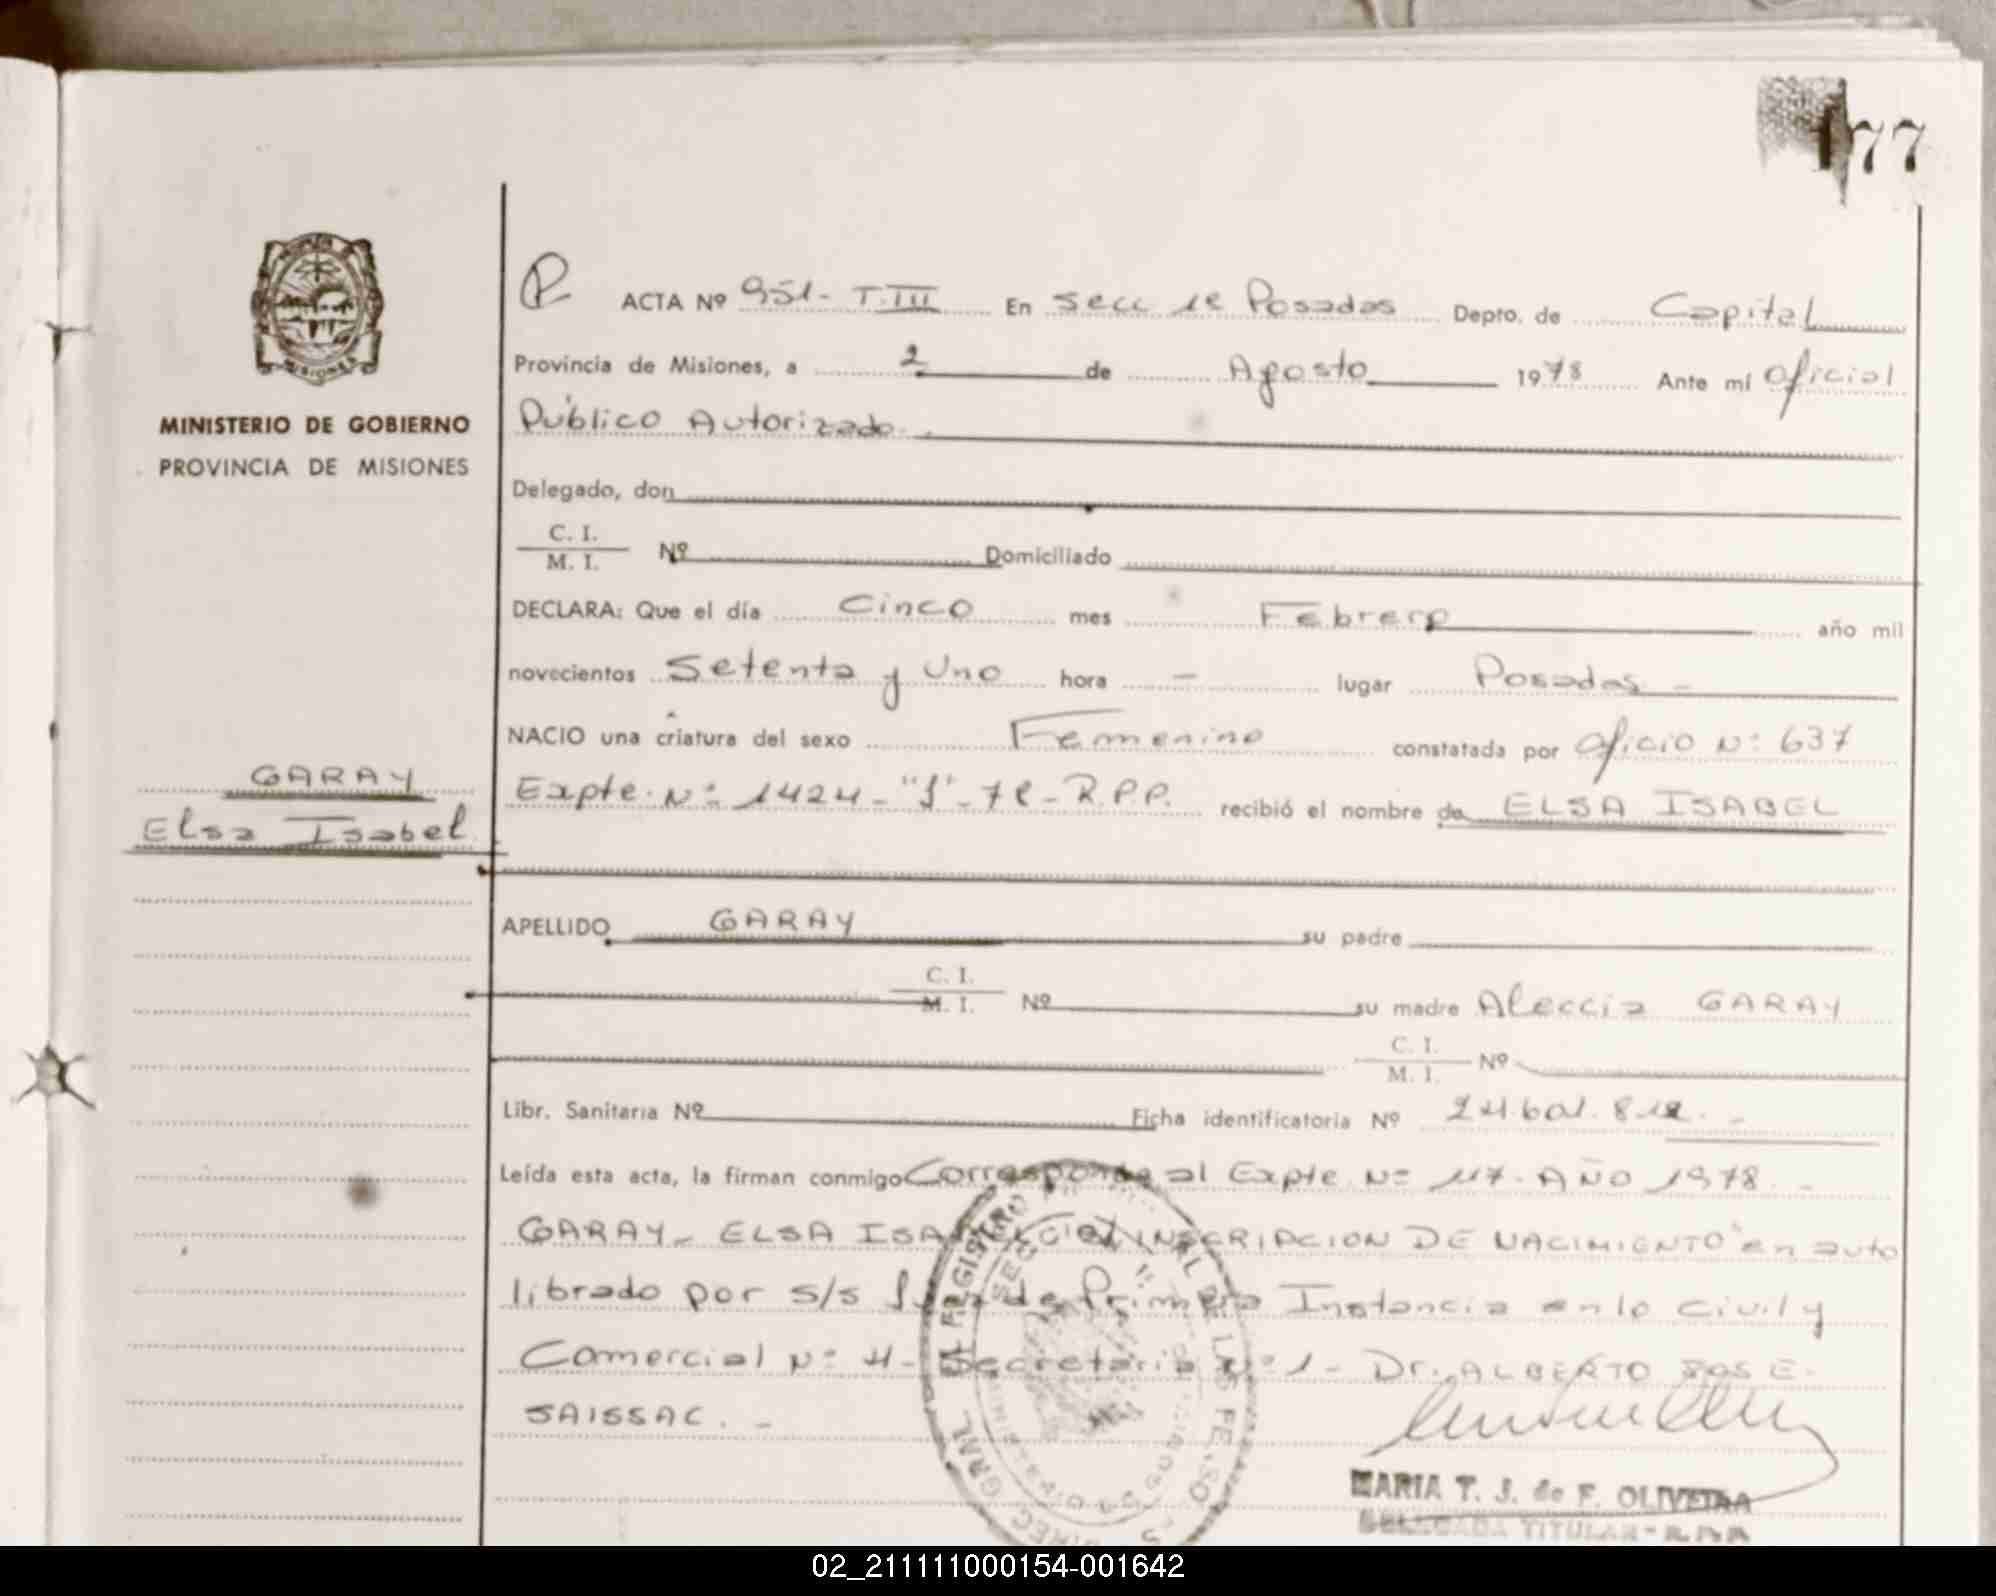 177
MISIONES
MINISTERIO DE GOBIERNO
PROVINCIA DE MISIONES
GARAY
Elsa Isabel
P ACTA Nº 951- T.III En Secc 1e Posadas Depto. de Capital
Provincia de Misiones, a 2 de Agosto 1978 Ante mí Oficial
Público Autorizado.
Delegado, don
C. I.
M. I. Nº Domiciliado
DECLARA: Que el día Cinco mes Febrero año mil
novecientos Setenta y Uno hora - lugar Posadas -
NACIO una criatura del sexo Femenino constatada por Oficio Nº 637
Expte. Nº 1424- "J"- 78- R.P.P. recibió el nombre de ELSA ISABEL
APELLIDO GARAY su padre
C. I.
M. I. Nº su madre Aleccia GARAY
C. I.
M. I. Nº
Libr. Sanitaria Nº Ficha identificatoria Nº 24.601.812. -
Leída esta acta, la firman conmigo Corresponde al Expte Nº 117- AÑO 1978. -
GARAY- ELSA ISABEL INSCRIPCION DE NACIMIENTO" en auto
librado por S/S Juez de Primera Instancia en lo Civil y
Comercial Nº 4- Secretaria Nº 1- Dr. ALBERTO JOSE.
SAISSAC. -
MARIA T. J. de F. OLIVEIRA
DELEGADA TITULAR - R.P.P.
02_211111000154-001642